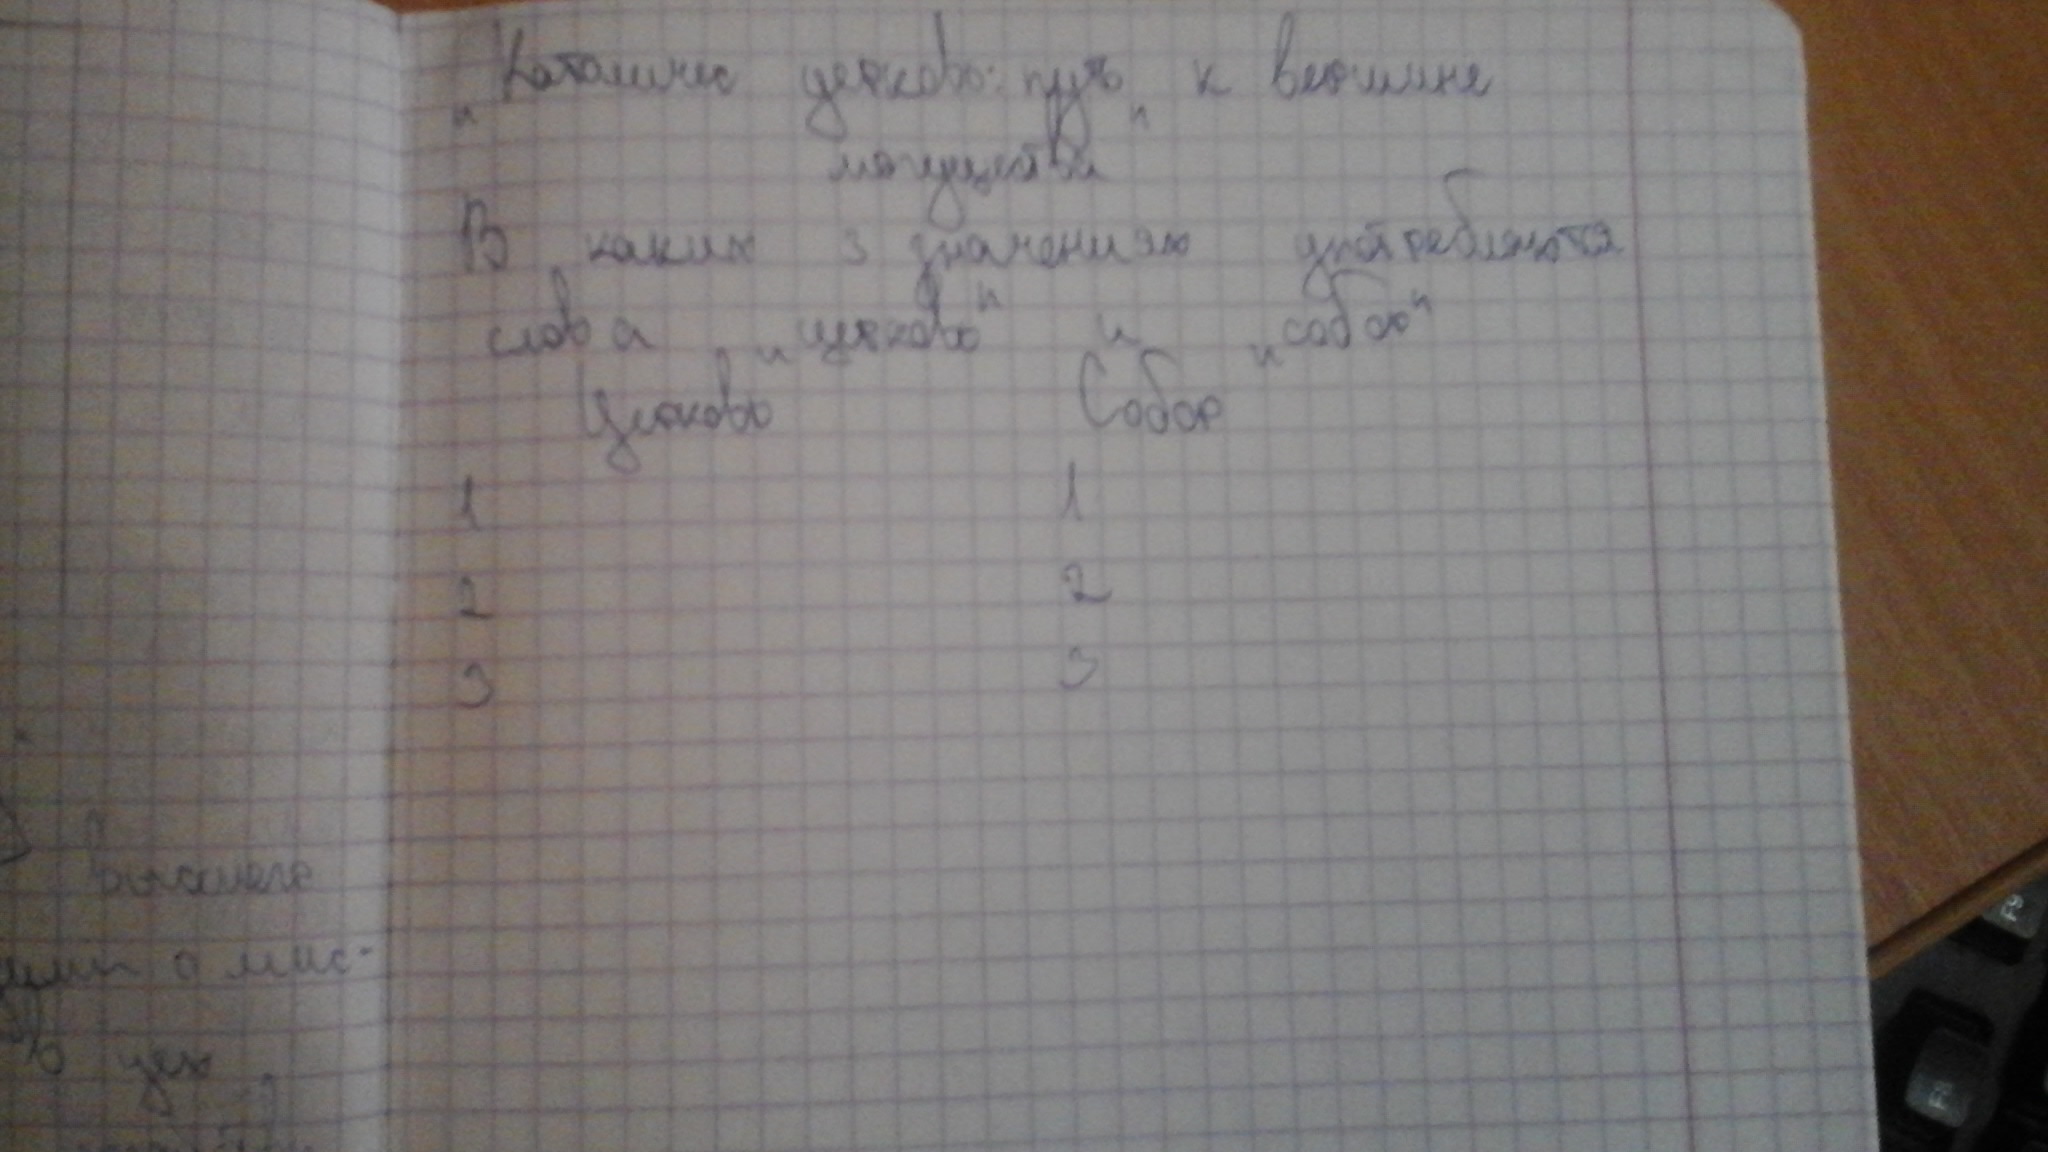 „Католичес церковь: путь к вершине
могущества"
В каких 3 значениях употребляются
слова „церковь" и „собор"
Церковь Собор
1 1
2 2
3 3
о мис-
цер
F9